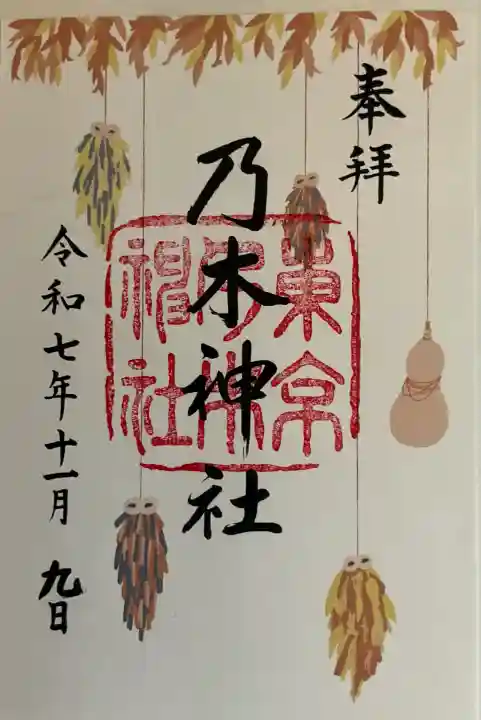 奉拝
乃木神社
東京
乃木
神社
令和七年十一月九日